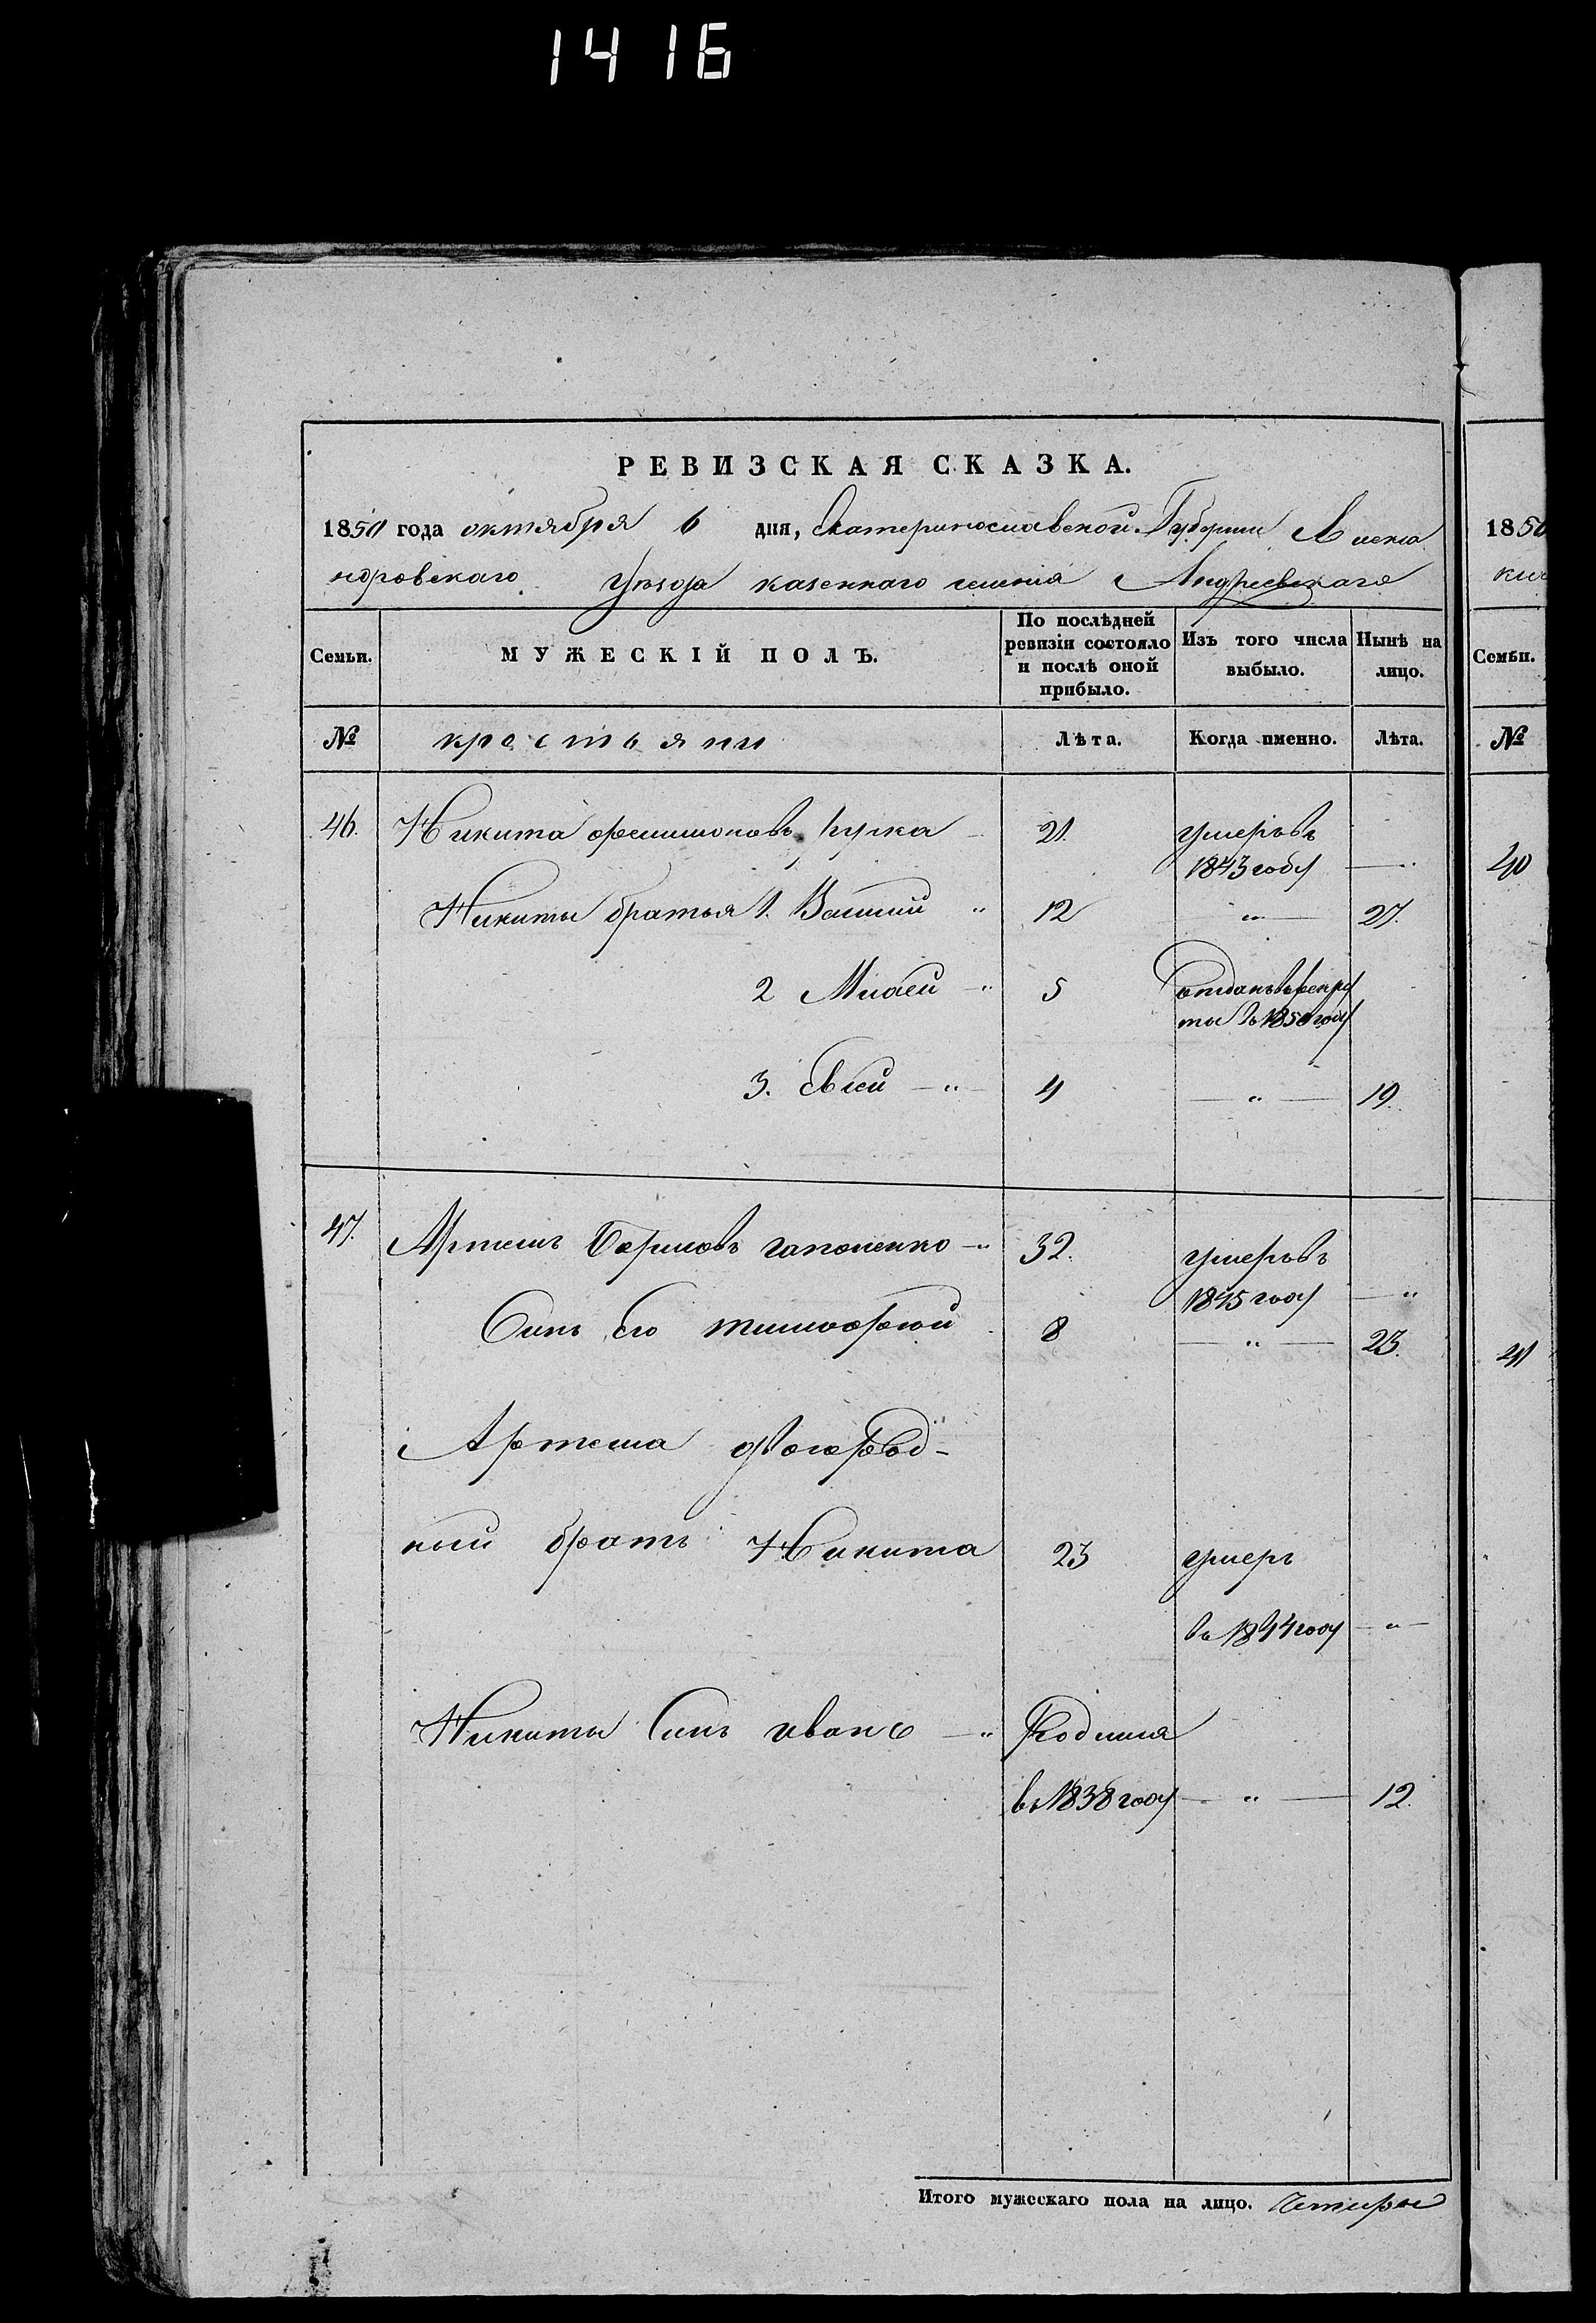 1416
РЕВИЗСКАЯ СКАЗКА.
1850 года октября 6 дня, Екатеринославской Губернии Алекса
ндровскаго Уезда казеннаго селения Андреевскаго
Семьи.
МУЖЕСКІЙ ПОЛЪ.
По послѣдней ревизіи состояло и послѣ оной прибыло.
Изъ того числа выбыло.
Нынѣ на лицо.
№ крестьяни Лѣта. Когда именно. Лѣта.
46. Никита 21. умеръ въ
1843 году —
Никиты братья 1. Василий " 12 " 27.
2 " 5 отданъ въ рекру
ты въ 1850 году
3. — " 4 — " — 19.
47. Артемъ гапоненко — " 32. умеръ въ
1845 году — "
Синъ Его тимофей 8 — " — 23.
Артема двоюрод-
ный братъ Никита 23 умеръ
въ 1844 году — " —
Никиты Синъ иванъ — " Родился
въ 1838 году — " — 12.
Итого мужескаго пола на лицо. Четыре
1850
Семьи.
№
40
41